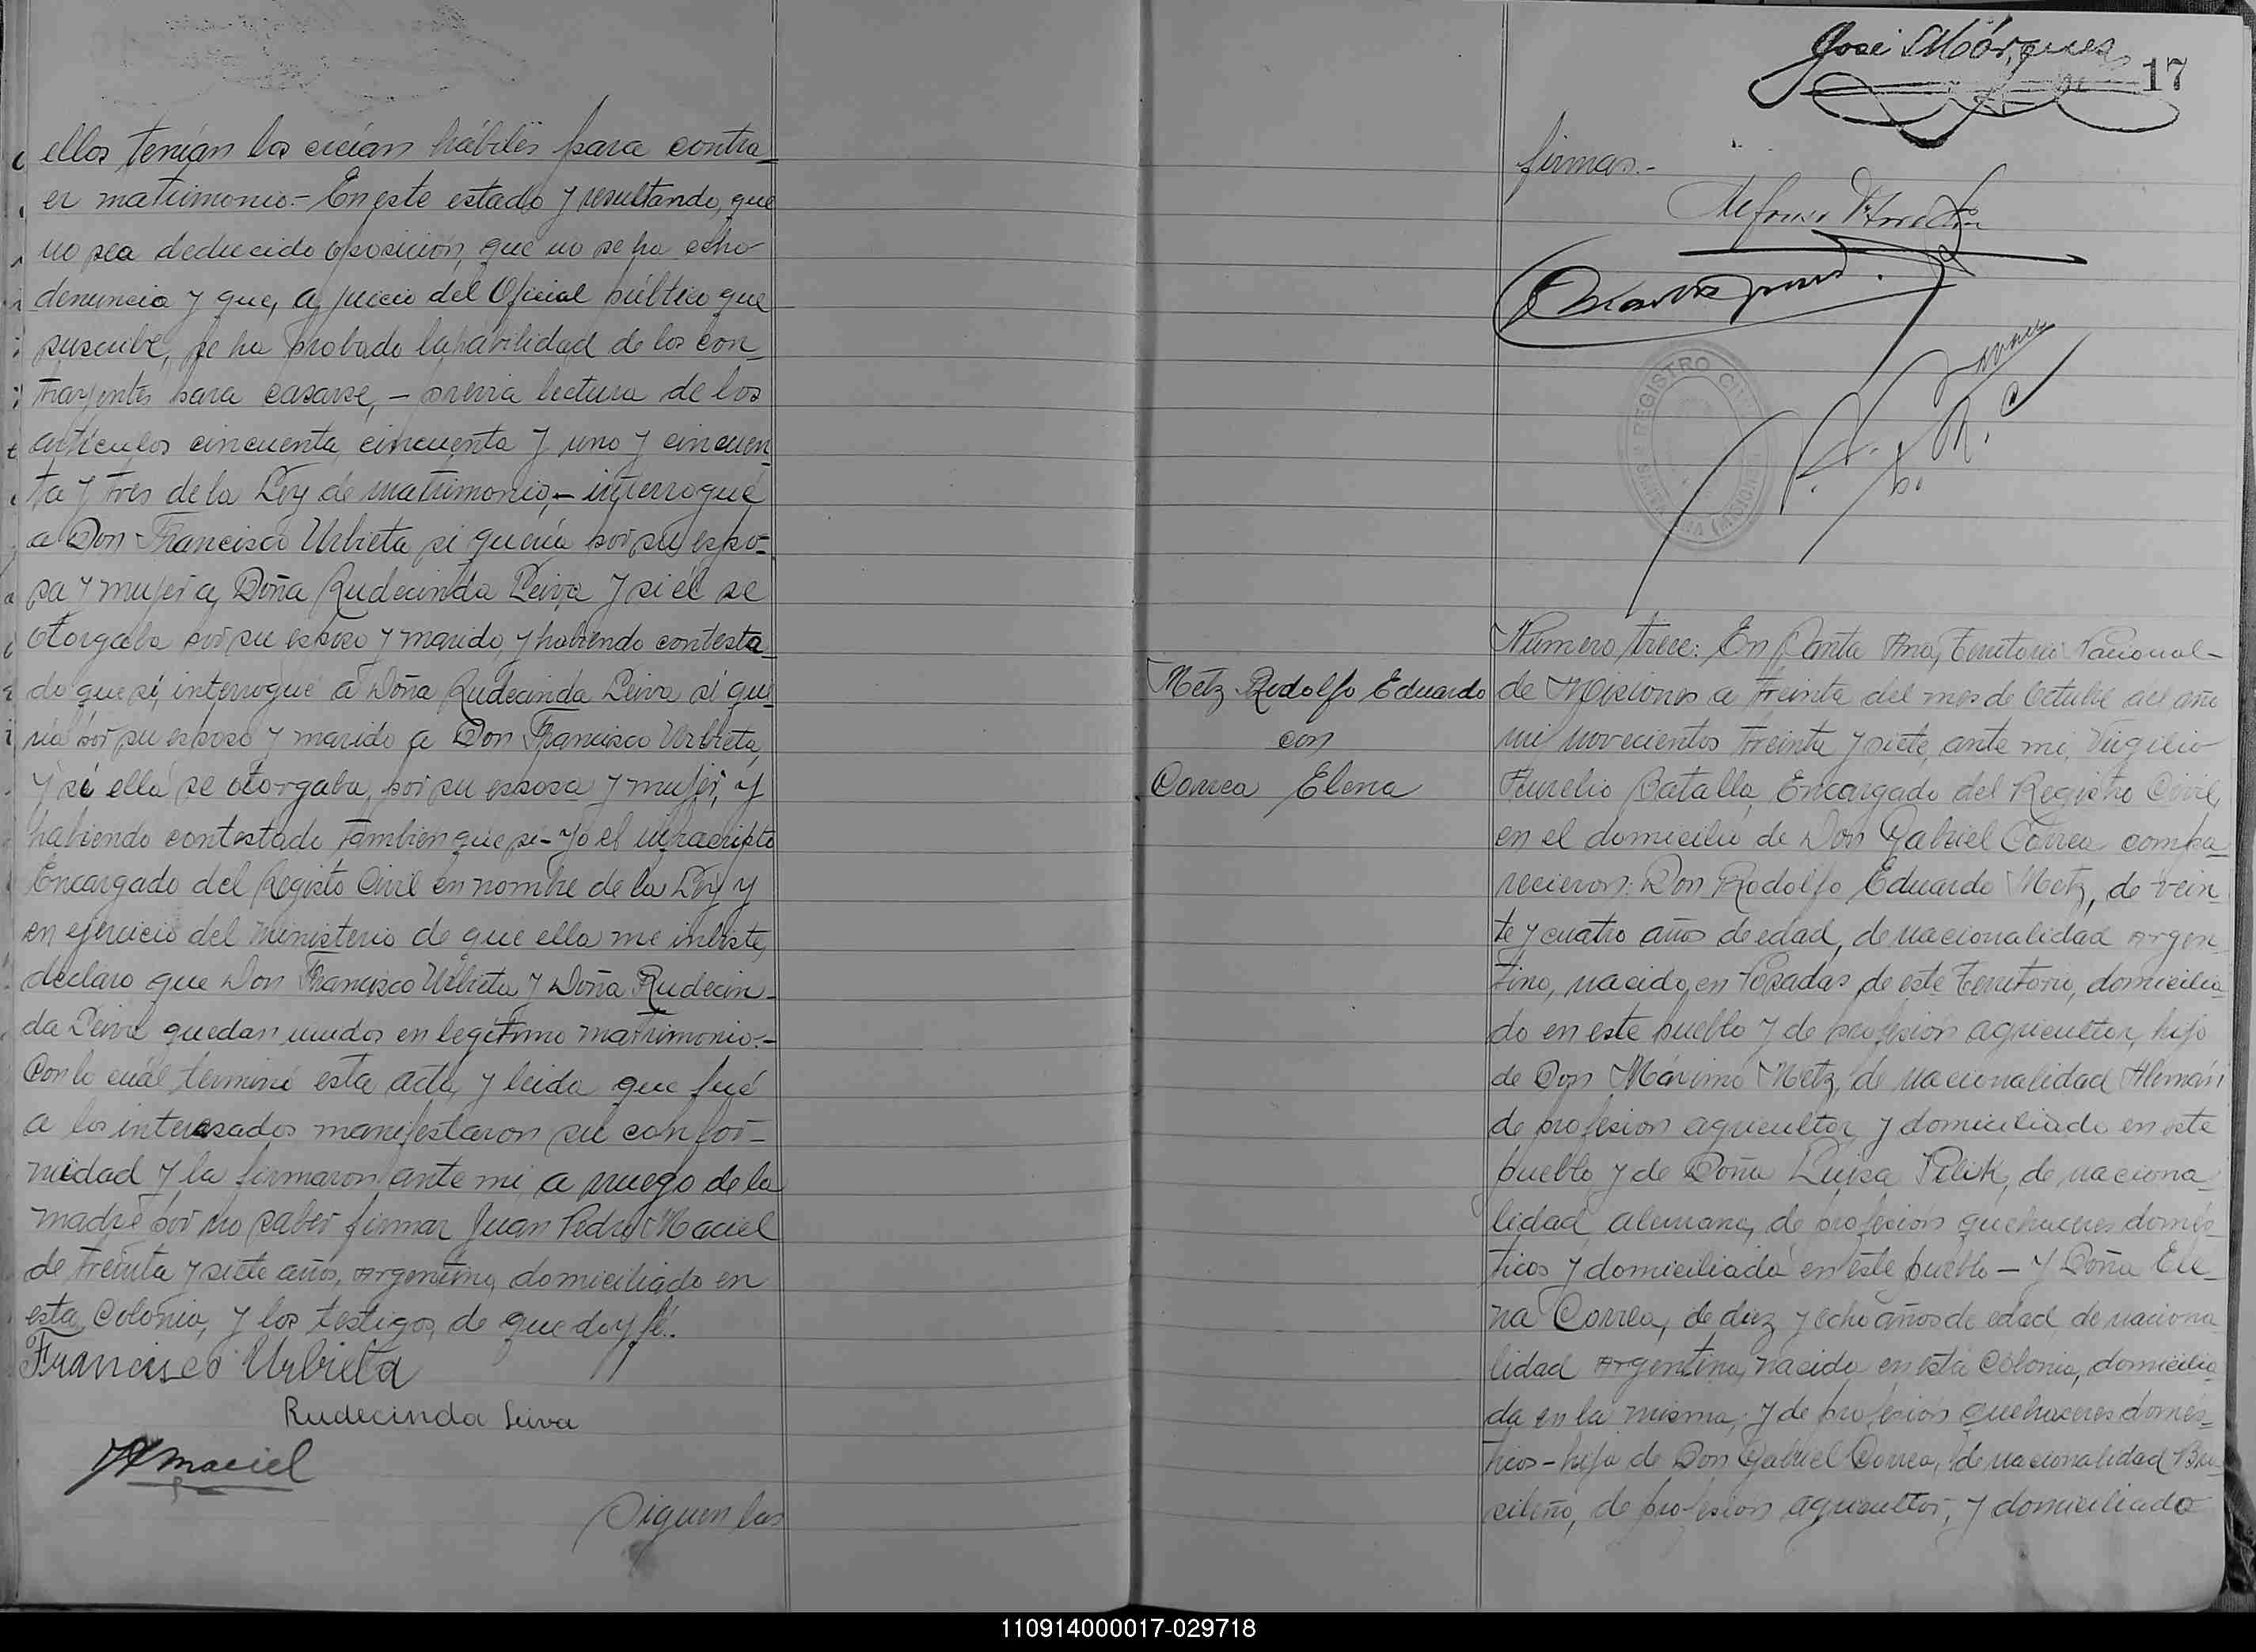 ellos tenían los cicían hábiles para contra-
er matrimonio.- En este estado y resultando, que
no sea deducido oposición, que no se ha echo
denuncia y que, a juicio del Oficial público que
suscribe, se ha probado la habilidad de los con-
trayentes para casarse, - previa lectura de los
artículos cincuenta, cincuenta y uno y cincuen-
ta y tres de la Ley de matrimonio, - interrogué
a Don Francisco Urbieta si quería por su espo-
sa y mujer a Doña Rudecinda Leiva y si él se
otorgaba por su esposo y marido, y habiendo contesta-
do que sí, interrogué a Doña Rudecinda Leiva si que-
ría por su esposo y marido a Don Francisco Urbieta,
y si ella se otorgaba, por su esposa y mujer, y
habiendo contestado tambien que si- Yo el infrascripto
Encargado del Registo Civil en nombre de la Ley y
en ejercicio del ministerio de que ella me inbiste,
declaro que Don Francisco Urbieta y Doña Rudecin-
da Leiva quedan unidos en legítimo matrimonio.-
Con lo cuál terminé esta acta, y leida que fué
a los interesados manifestaron su confor-
midad y la firmaron ante mi, a ruego de la
madre por no saber firmar Juan Pedro Maciel
de treinta y siete años, argentino, domiciliado en
esta Colonia, y los testigos, de que doy fé.
Francisco Urbieta
Rudecinda Leiva
JP Maciel
Siguen las
José Márques
17
firmas.-
REGISTRO CIVIL
SANTA ANA (MISIONES)
Metz Rodolfo Eduardo
con
Correa Elena
Número trece: En Santa Ana, Territorio Nacional-
de Misiones a treinta del mes de Octubre del año
mil novecientos treinta y siete, ante mi, Virgilio
Aurelio Batalla, Encargado del Registro Civil,
en el domicilio de Don Gabriel Correa compa-
recieron: Don Rodolfo Eduardo Metz, de vein-
te y cuatro años de edad, de nacionalidad argen-
tino, nacido en Posadas de este Territorio, domicilia-
do en este pueblo y de profesión agricultor, hijo
de Don Máximo Metz, de nacionalidad Alemán
de profesion agricultor y domiciliado en este
pueblo y de Doña Luisa Pilik, de naciona-
lidad alemana, de profesión quehaceres domés-
ticos y domiciliada en este pueblo - Y Doña Ele-
na Correa, de diez y ocho años de edad, de naciona-
lidad Argentina, nacida en esta Colonia, domicilia-
da en la misma, y de profesión quehaceres domés-
ticos - hija de Don Gabriel Correa, de nacionalidad Bra-
sileño, de profesión agricultor, y domiciliado
110914000017-029718